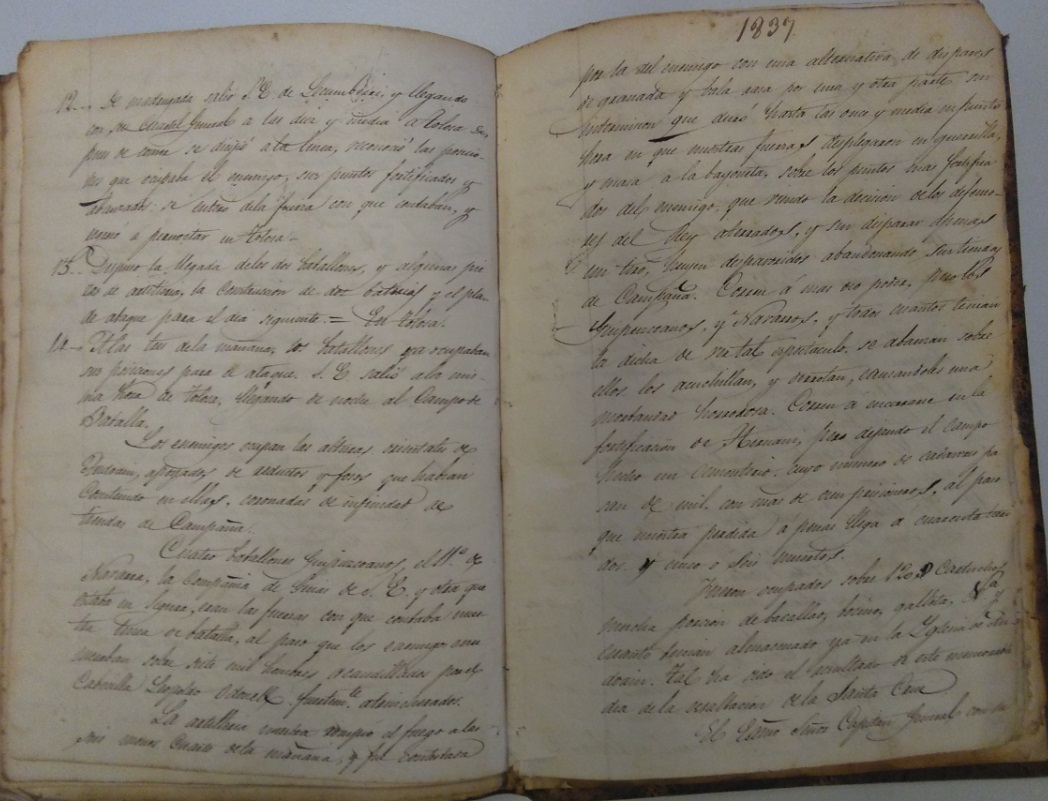 12... De madrugada salió S. E. de Lecumberri y llegando
con su Cuartel General a las diez y media a Tolosa des-
pues de comer se dirijió á la linea, reconoció las posicio-
nes que ocupaba el enemigo, sus puntos fortificados y
se enteró de la fuerza con que contaban, y
vino a pernoctar en Tolosa.
13... Dispuso la llegada de los dos batallones, y algunas pie-
zas de artilleria, la construccion de dos baterias y el plan
de ataque para el dia siguiente. = En Tolosa.
14... A las tres de la mañana, los batallones ya ocupaban
sus posiciones para el ataque. S. E. salió a la mis-
ma hora de Tolosa, llegando de noche al Campo de
Batalla.
Los enemigos ocupan las alturas orientales de
Andoain, apoyados de reductos y fosos que habian
construido en ellas, coronadas de infinidad de
tiendas de Campaña.
Cuatro batallones Guipuzcoanos, el 11.º de
Navarra, la Compañia de Guias de S. E. y otra que
estaba en, eran las fuerzas con que contaba nues-
tra linea de batalla, al paso que los enemigos
sobre siete mil hombres acaudillados por el
Cabecilla Leopoldo Odonell fuertem.te atrincherados.
La artilleria nuestra rompió el fuego a las
seis menos cuarto de la mañana, y fue contestada
1837
por la del enemigo con una alternativa de disparos
de granada y bala rasa por una y otra parte sin
intermision que duró hasta las once y media en punto
hora en que nuestras fuerzas desplegaron en guerrilla,
y masa a la bayoneta, sobre los puntos mas fortifica-
dos del enemigo, que viendo la decision de los defenso-
res del Rey aterrados, y sin disparar apenas
un tiro, huyen despavoridos abandonando sus tiendas
de Campaña. Corren á mas no poder, pero los
Guipuzcoanos, y Navarros, y todos cuantos tenian
la dicha de ver tal espectaculo, se abanzan sobre
ellos los acuchillan, y derrotan, causandoles una
mortandad horrorosa. Corren á encerrarse en la
fortificacion de Hernani, pero dejando el campo
hecho un cementerio, cuyo numero de cadaveres pa-
san de mil, con mas de cien prisioneros, al paso
que nuestra perdida á penas llega á cuarenta heri-
dos y cinco ó seis muertos.
Fueron ocupados sobre 120 Cartuchos
mucha porcion de bacallao, tocino, galleta, &a y
cuanto tenian almacenado ya en la Yglesia de An-
doain. Tal ha sido el resultado de este memorable
dia de la exaltacion de la Santa Cruz
El Exmo Señor Capitan General con su